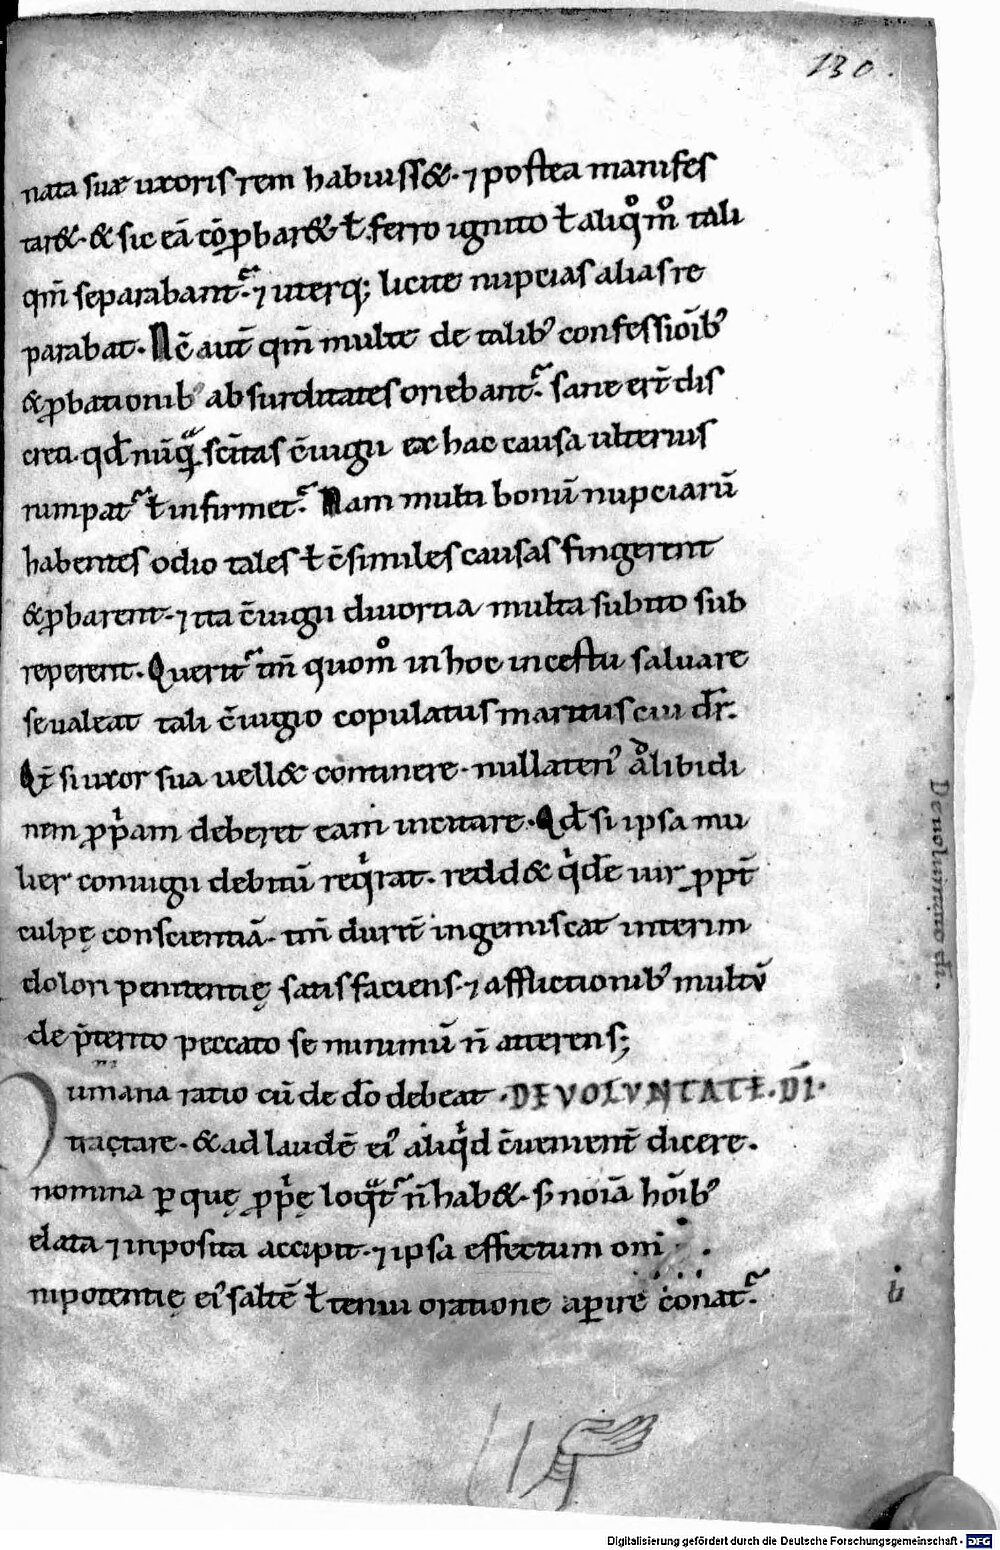 130.
nata suæ uxoris rem habuiss&. ⁊ postea manifes
tar&. & sic eā cōꝓbar& ƚ ferro ignito ƚ aliqͦmͦ tali
qm̄ separabant᷑. ⁊ uterq; licite nupcias alias re
parabat. Nc̄ aut̄ qm̄ multe de talibꝰ confessioībꝰ
&ꝓbationibꝰ absurditates oriebant᷑. sane ert̄ dis
creti. qd̄ nūqᷓ scītas c̄iugii ex hac causa ulterius
rumpat᷑ ƚ infirmet᷑. Nam multi bonū nupciarū
habentes odio tales ƚ c̄similes causas fingerent
&ꝓbarent. ⁊ ita c̄iugii diuortia multa subito sub
reperent. Querit᷑ tm̄ quomͦ in hoc incestu saluare
se ualeat tali c̄iugio copulatus maritus cui dr̄.
Qͥ si uxor sua uell& continere. nullatenꝰ ad libidi
nem ꝓpͥam deberet eam incitare. Qd̄ si ipsa mu
lier coniugii debitū reqͥrat. redd& qͥde uir ꝓpt̄
culpę conscientiā. tm̄ durit̄ ingemiscat interim
dolori penitentię satisfaciens. ⁊ afflictionibꝰ multū
de p̄terito peccato se nimimū n̄ atterens;
umana ratio cū de do debeat . DE VOLVNTATE. DI.
tractare. & ad laudē eiꝰ aliqͥd c̄uenient̄ dicere.
nomina per quę ꝓpͥę loqᷓt᷑ n̄ hab&. s; noīa hoībꝰ
data ⁊ inposita accipit. ⁊ ipsa effectum omi
nipotentię eiꝰ saltē ƚ tenui oratione aperire conat᷑.
De uoluntate di.